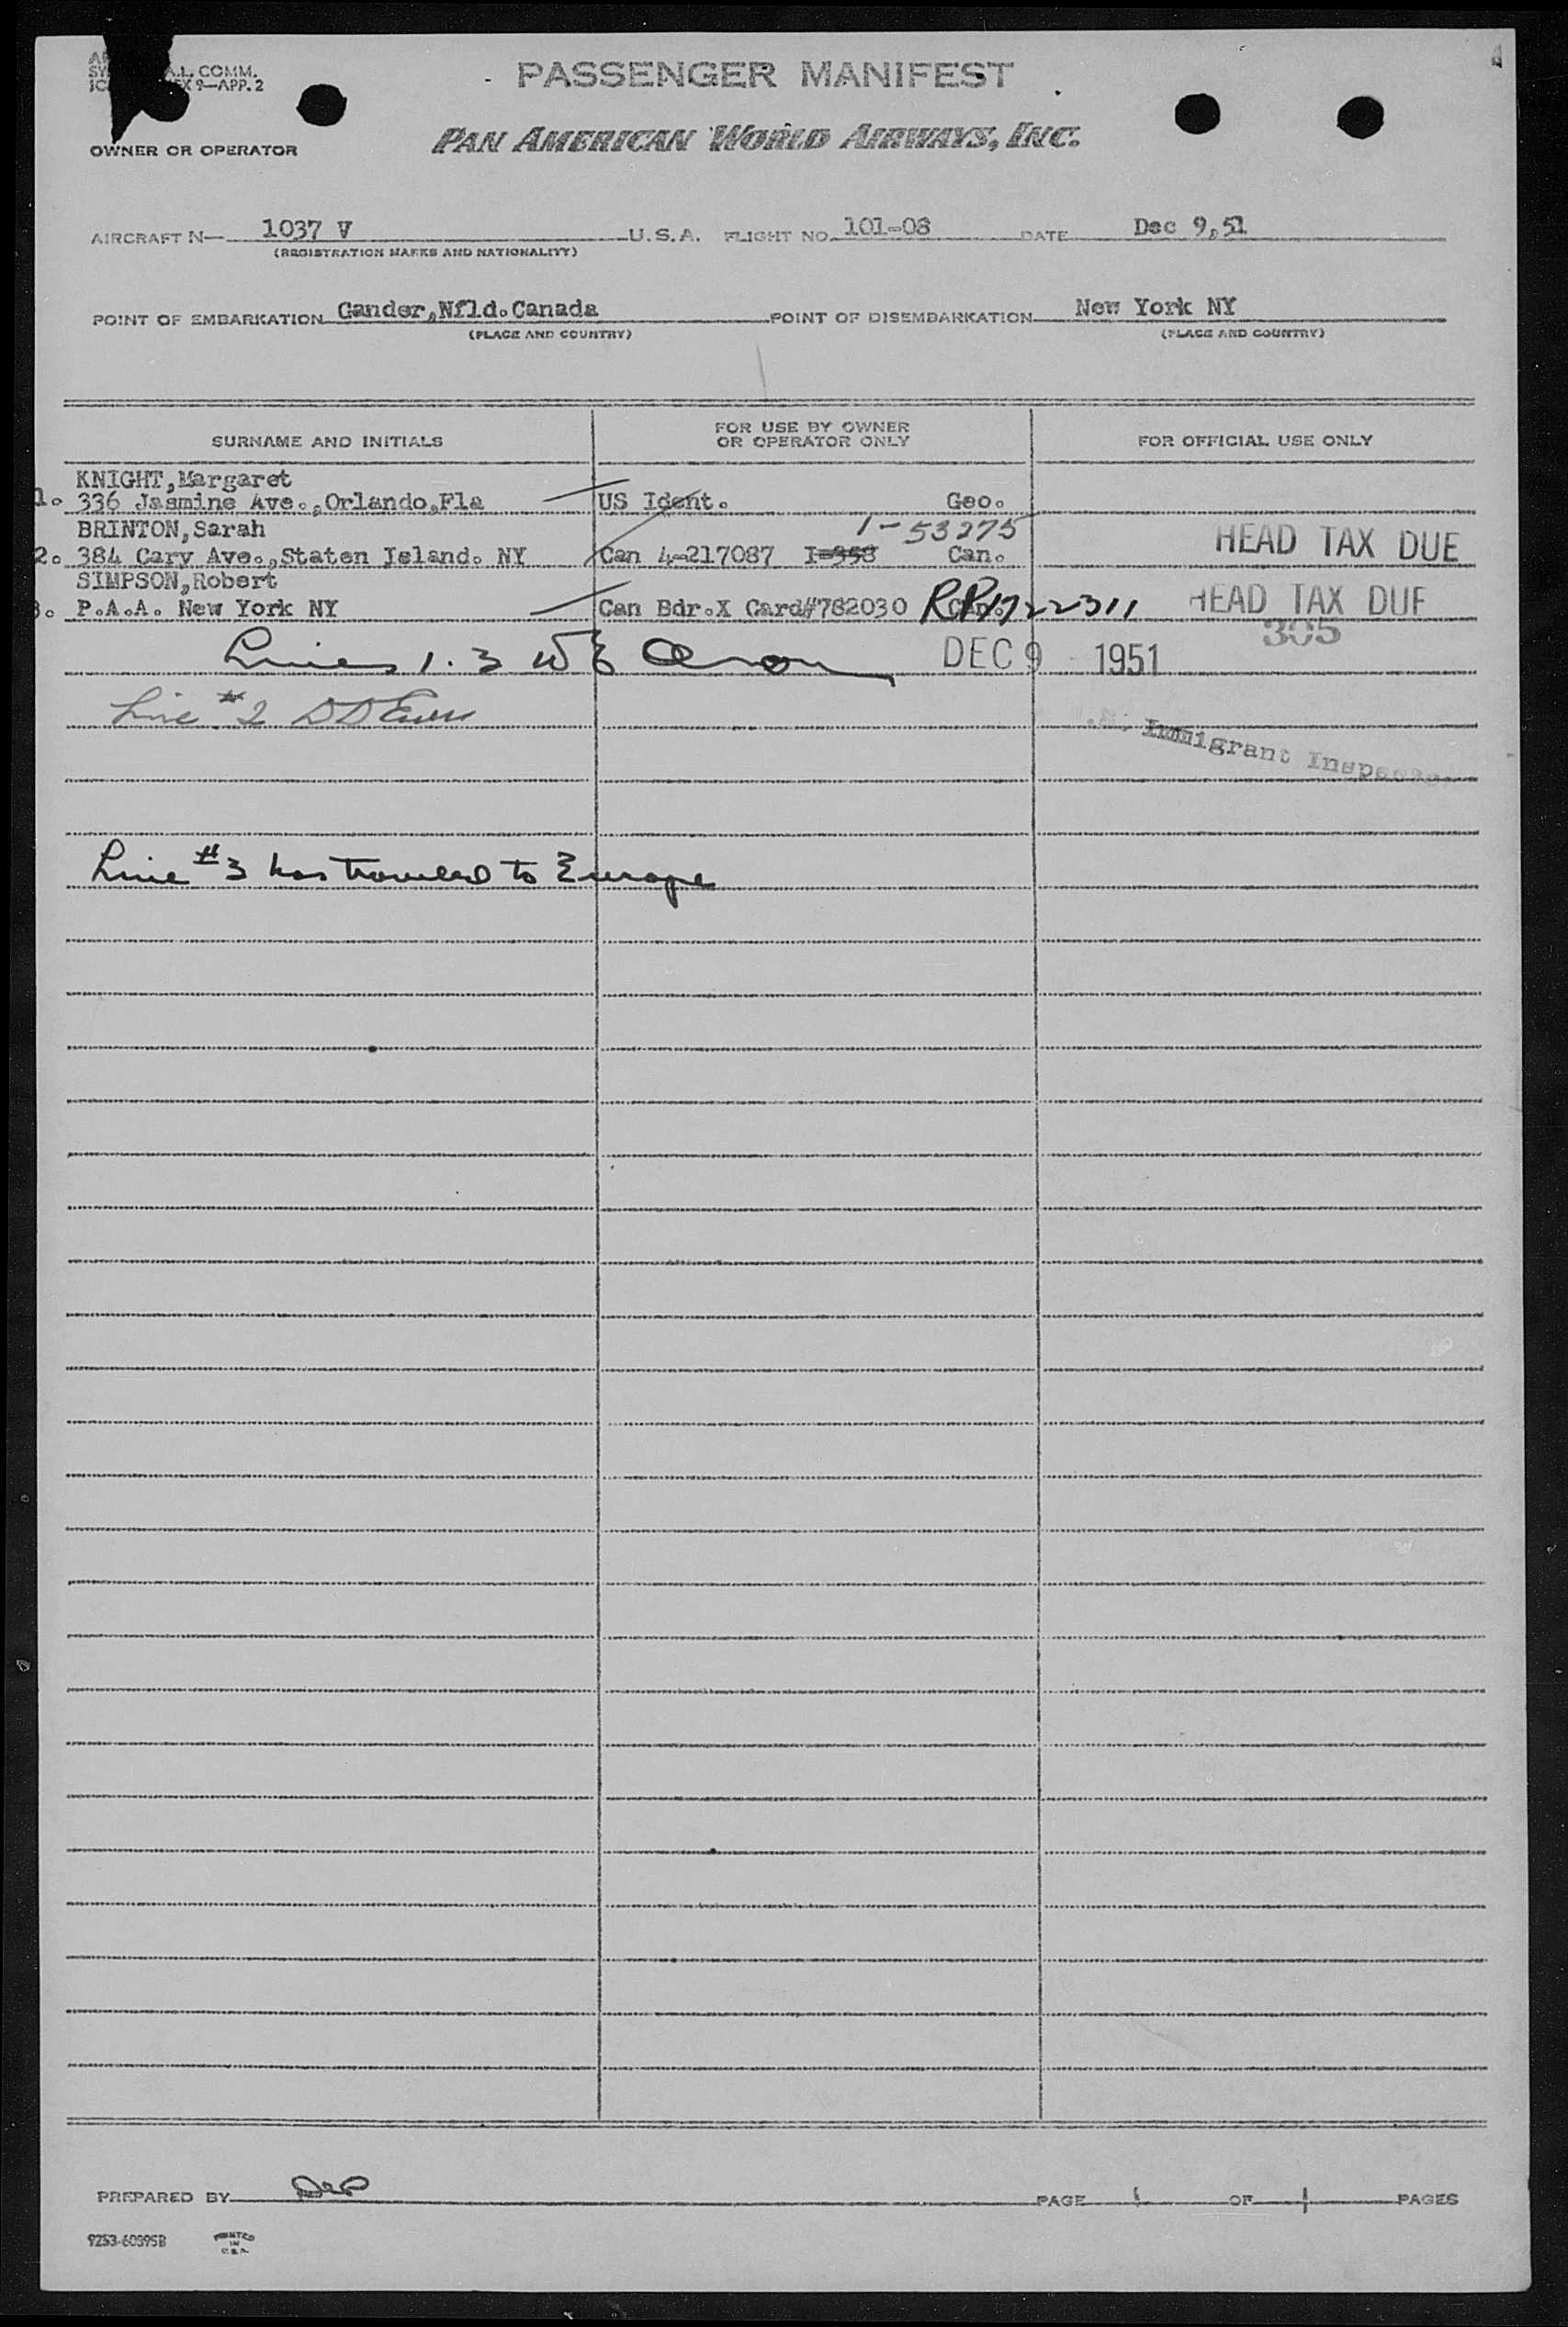 A.L. COMM.
X 9—APP. 2
PASSENGER MANIFEST
OWNER OR OPERATOR
PAN AMERICAN WORLD AIRWAYS, INC.
AIRCRAFT N— 1037 V U.S.A. FLIGHT NO. 101-08 DATE Dec 9,51
(REGISTRATION MARKS AND NATIONALITY)
POINT OF EMBARKATION Gander,Nfld.Canada POINT OF DISEMBARKATION New York NY
(PLACE AND COUNTRY) (PLACE AND COUNTRY)
SURNAME AND INITIALS FOR USE BY OWNER OR OPERATOR ONLY FOR OFFICIAL USE ONLY
KNIGHT,Margaret
1. 336 Jasmine Ave.,Orlando,Fla US Ident. Geo.
BRINTON,Sarah 1-53275
2. 384 Cary Ave.,Staten Island. NY Can 4-217087 I-358 Can. HEAD TAX DUE
SIMPSON,Robert
3. P.A.A. New York NY Can Bdr.X Card#782030 Can. 1722311 HEAD TAX DUE
305
Lines 1. 3 DEC 9 1951
Line #2
Immigrant Inspector
Line #3 has traveled to Europe
PREPARED BY PAGE 1 OF 1 PAGES
9253-60395B PRINTED IN U.S.A.